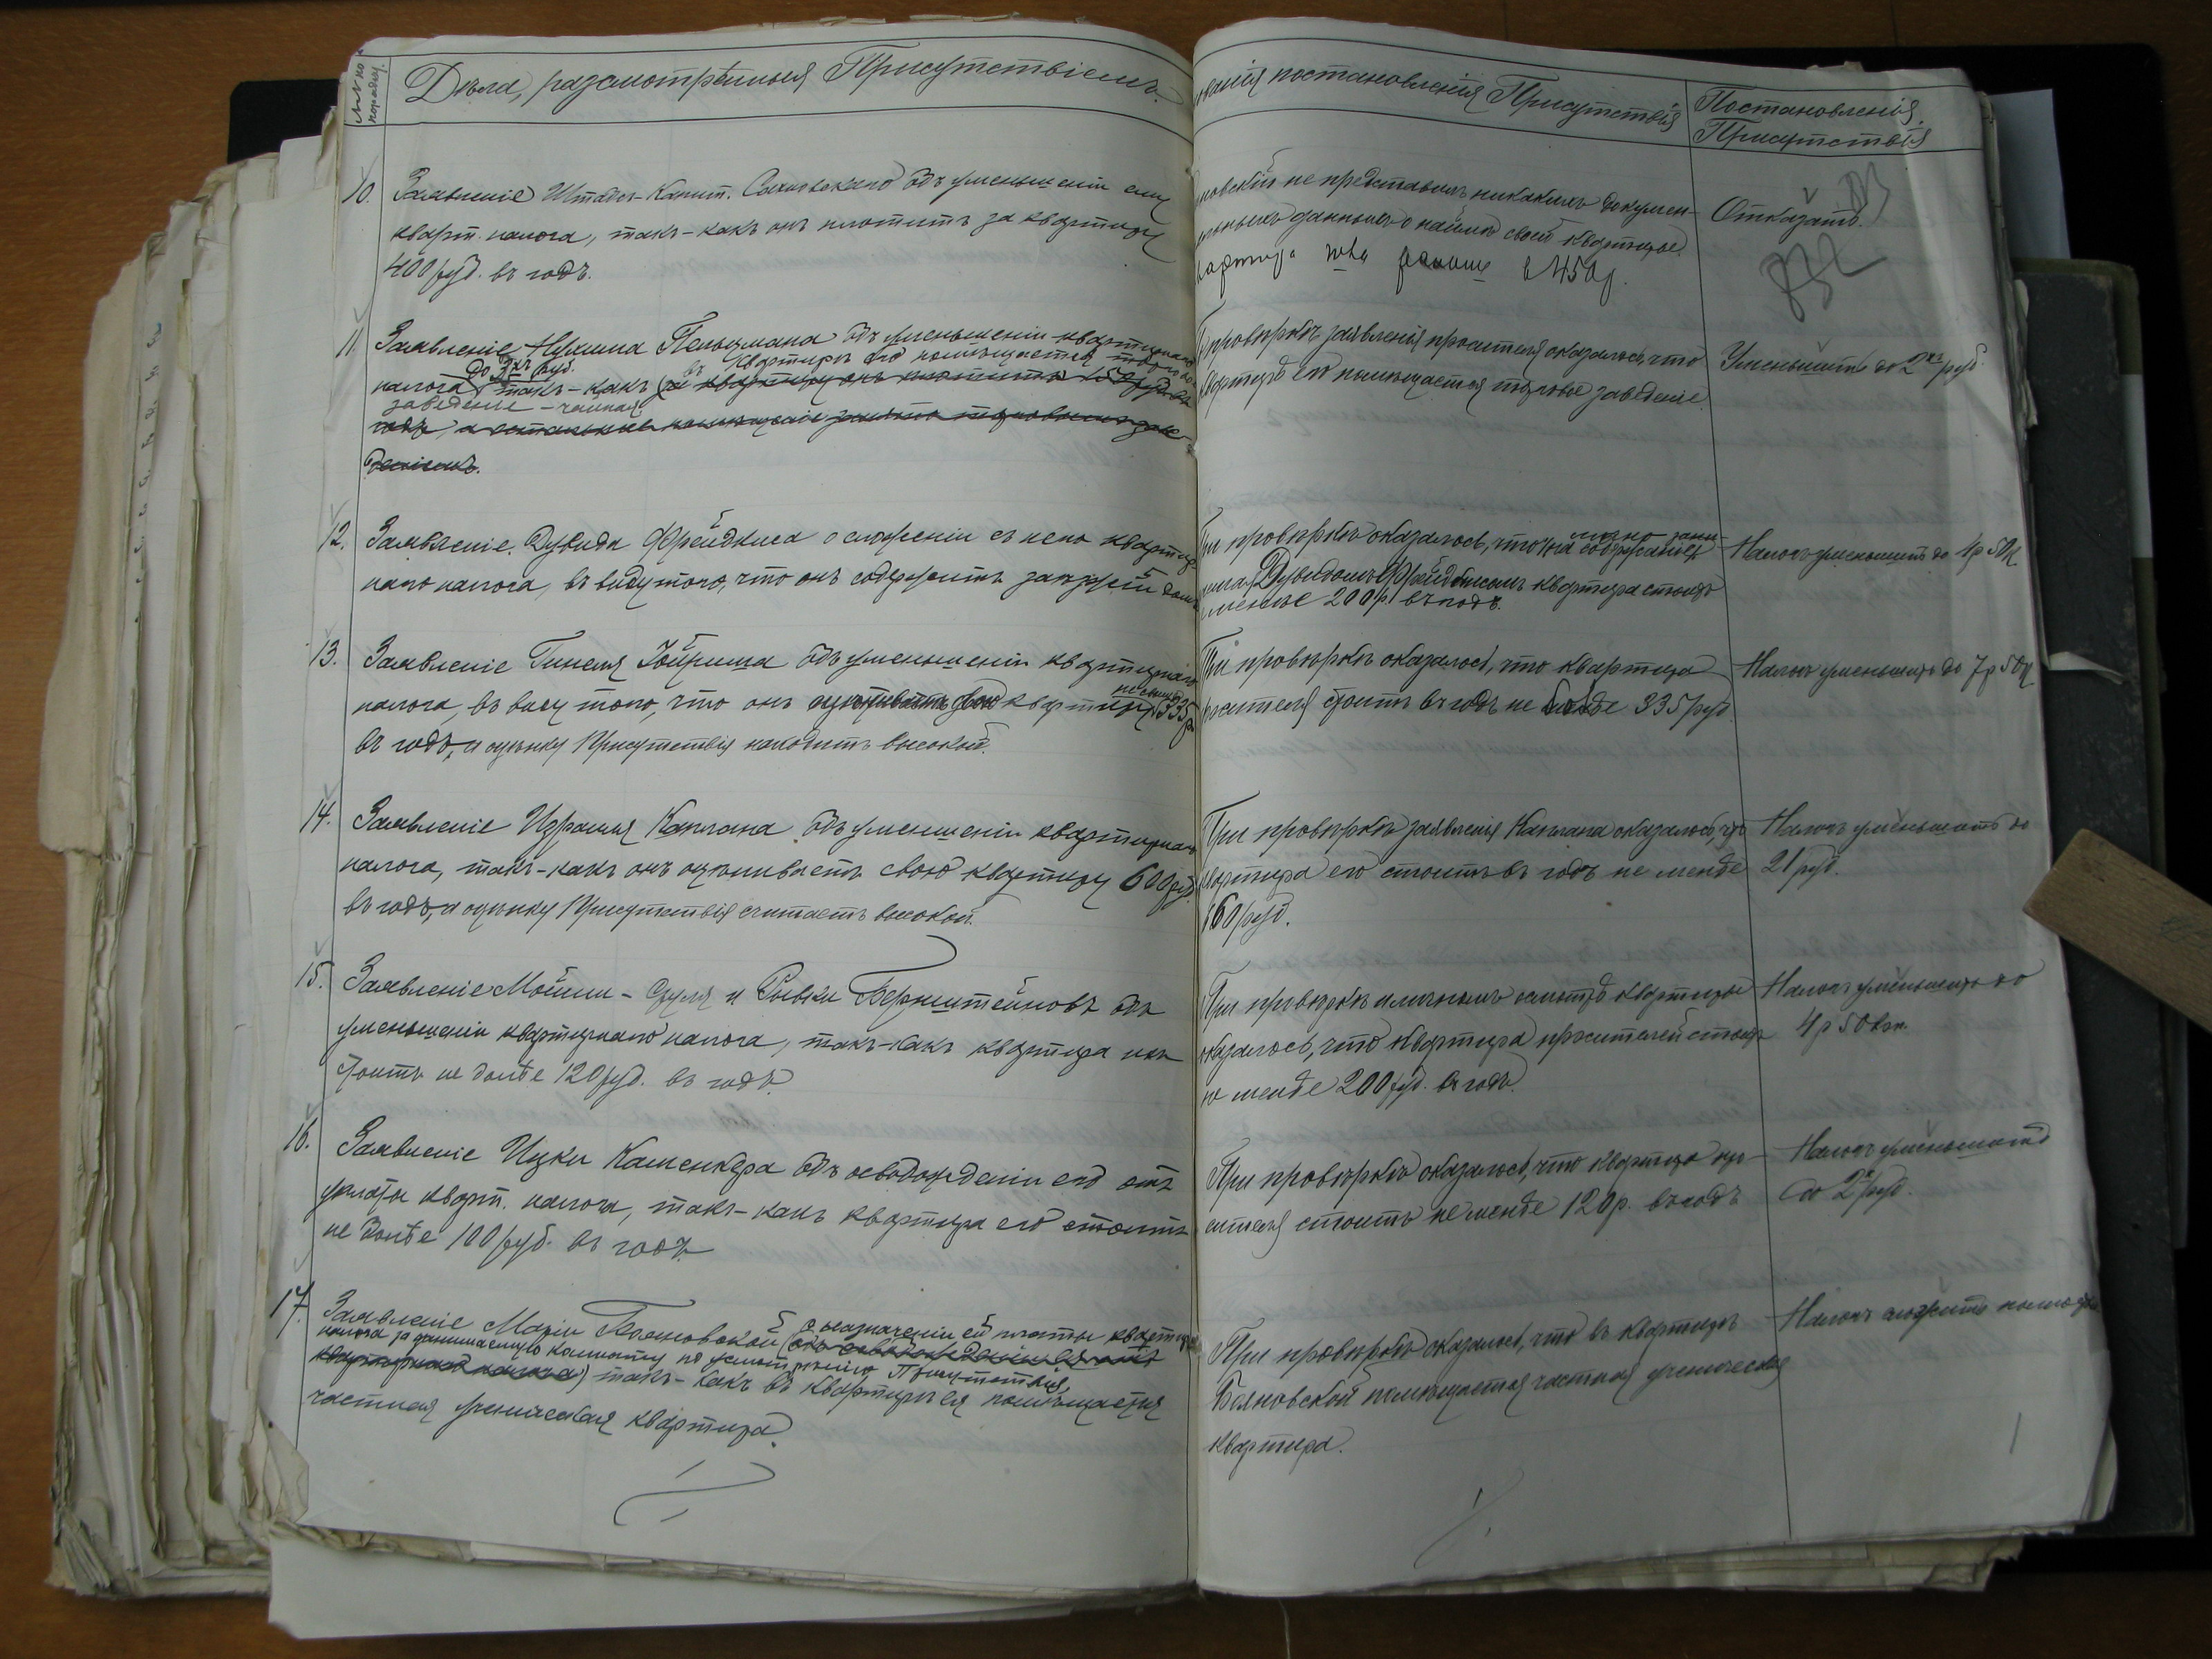 №№ по порядку.
Дѣла, разсмотрѣнныя Присутствіемъ.
10. Заявленіе Штабсъ-Капит. объ уменьшеніи ему
кварт. налога, такъ-какъ онъ платитъ за квартиру
400 руб. въ годъ.
11. Заявленіе Нухима Пельцмана объ уменьшеніи квартирнаго
до 2хъ руб. въ квартирѣ его помѣщается торговое
налога такъ-какъ за квартиру онъ платитъ 150 руб. въ
заведеніе - чайная.
годъ, а остальное помѣщеніе занято торговымъ заве-
деніемъ.
12. Заявленіе Дувида Фрейдкиса о сложеніи съ него квартир-
наго налога, въ виду того, что онъ содержитъ заѣзжій домъ
13. Заявленіе объ уменьшеніи квартирнаго
не свыше
налога, въ виду того, что онъ оцѣниваетъ свою квартиру 335 р.
въ годъ, и оцѣнку Присутствія находитъ высокой.
14. Заявленіе Израиля Каплана объ уменьшеніи квартирнаго
налога, такъ-какъ онъ оцѣниваетъ свою квартиру 600 руб.
въ годъ, и оцѣнку Присутствія считаетъ высокой.
15. Заявленіе Мойши-Сруля и Ривки Бернштейновъ объ
уменьшеніи квартирнаго налога, такъ-какъ квартира ихъ
стоитъ не болѣе 120 руб. въ годъ.
16. Заявленіе Ицки Каменкера объ освобожденіи его отъ
уплаты кварт. налога, такъ-какъ квартира его стоитъ
не болѣе 100 руб. въ годъ.
17. Заявленіе Маріи Бояновской о неназначеніи ей платы квартирн.
налога за занимаемую комнату по усмотрѣнію Присутствія,
квартирнаго налога) такъ-какъ въ квартирѣ ея помѣщается
частная ученическая квартира.
постановленія Присутствія
не представилъ никакихъ докумен-
данныхъ о наймѣ своей квартиры.
раньше 450 р.
провѣркѣ заявленія просителя оказалось, что
квартирѣ его помѣщается торговое заведеніе.
При провѣркѣ оказалось, что
Дувидомъ Фрейдкисомъ квартира стоитъ
менѣе 200 р. въ годъ.
При провѣркѣ оказалось, что квартира
просителя стоитъ въ годъ не болѣе 335 руб.
При провѣркѣ заявленія Каплана оказалось, что
квартира его стоитъ въ годъ не менѣе
руб.
При провѣркѣ и личномъ осмотрѣ квартиры
оказалось, что квартира просителей стоитъ
не менѣе 200 руб. въ годъ.
При провѣркѣ оказалось, что квартира про-
сителя стоитъ не менѣе 120 р. въ годъ
При провѣркѣ оказалось, что въ квартирѣ
Бояновской помѣщается частная ученическая
квартира.
Постановленія
Присутствія
Отказать.
Уменьшить до 2хъ руб.
Налогъ уменьшить до 4 р 50 к
Налогъ уменьшить до 7 р 50 к
Налогъ уменьшить до
21 руб.
Налогъ уменьшить до
4 р 50 коп.
Налогъ уменьшить
до 2 руб.
Налогъ сложить